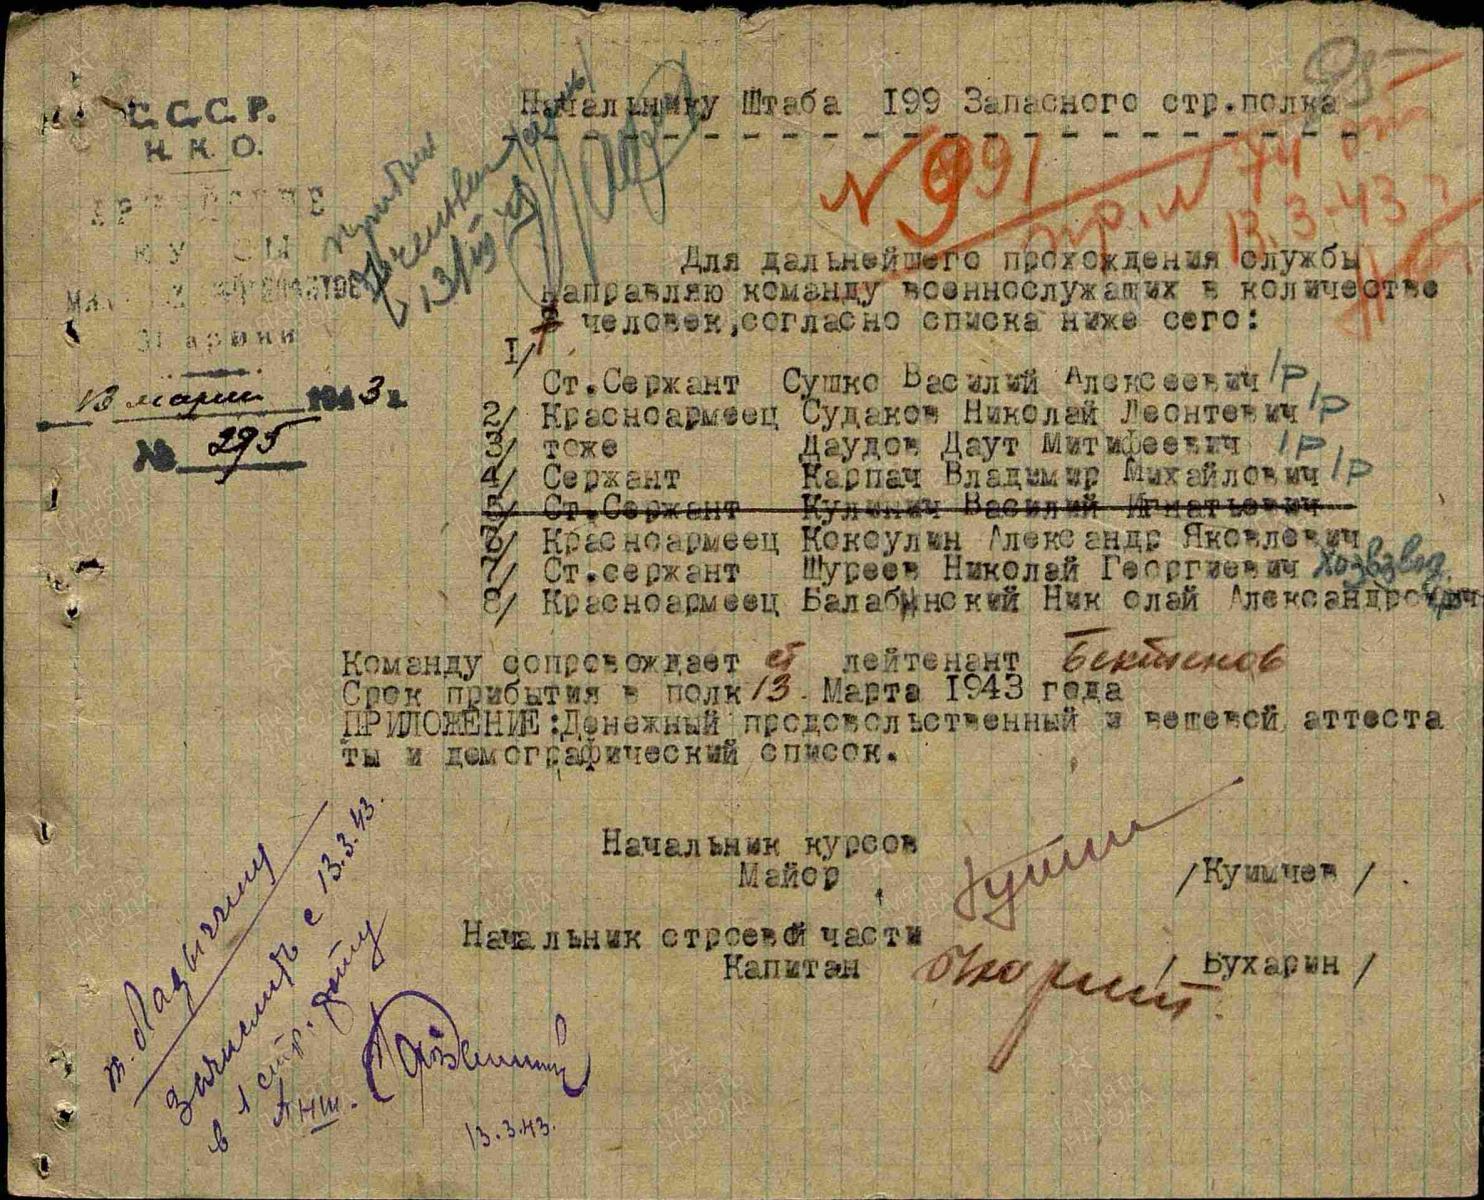 С.С.С.Р.
Н. К. О.
31 армии
13 марта 1943 г.
№ 295
Начальнику Штаба 199 Запасного стр.полка
13/III 43
№ 991
пр. № 74 от
13.3-43 г
Для дальнейшего прохождения службы
направляю команду военнослужащих в количестве
человек,согласно списка ниже сего:
1/
Ст.Сержант Сушко Василий Алексеевич 1р
2/ Красноармеец Судаков Николай Леонтевич 1р
3/ тоже Даудов Даут Митифеевич 1р
4/ Сержант Карпач Владимир Михайлович 1р
5/ Ст.Сержант Кулинич Василий Игнатьевич
6/ Красноармеец Коксулин Александр Яковлевич
7/ Ст.сержант Шуреев Николай Георгиевич Хозвзвод.
8/ Красноармеец Балабинский Ник олай Александрович
Команду сопровождает ст лейтенант Бектенов
Срок прибытия в полк 13 Марта 1943 года
ПРИЛОЖЕНИЕ:Денежный продовольственный и вещевой аттеста
ты и демографический список.
Начальник курсов
Майор /Кумычев /
Начальник строевой части
Капитан / Бухарин /
т. Ладычкину
зачислить с 13.3.43.
в 1 стр. роту
ПНШ.
13.3.43.